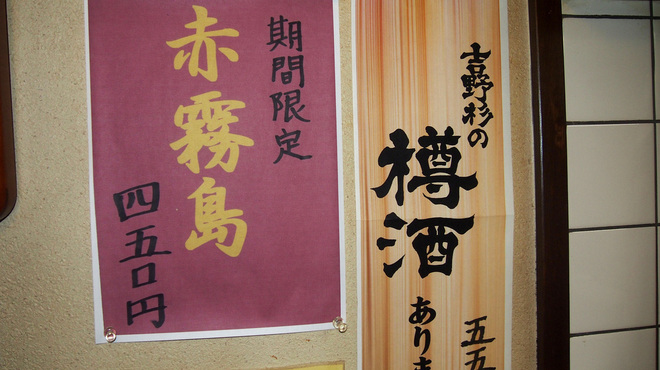 期間限定
赤霧島
四五〇円
吉野杉の
樽酒
あり
五五